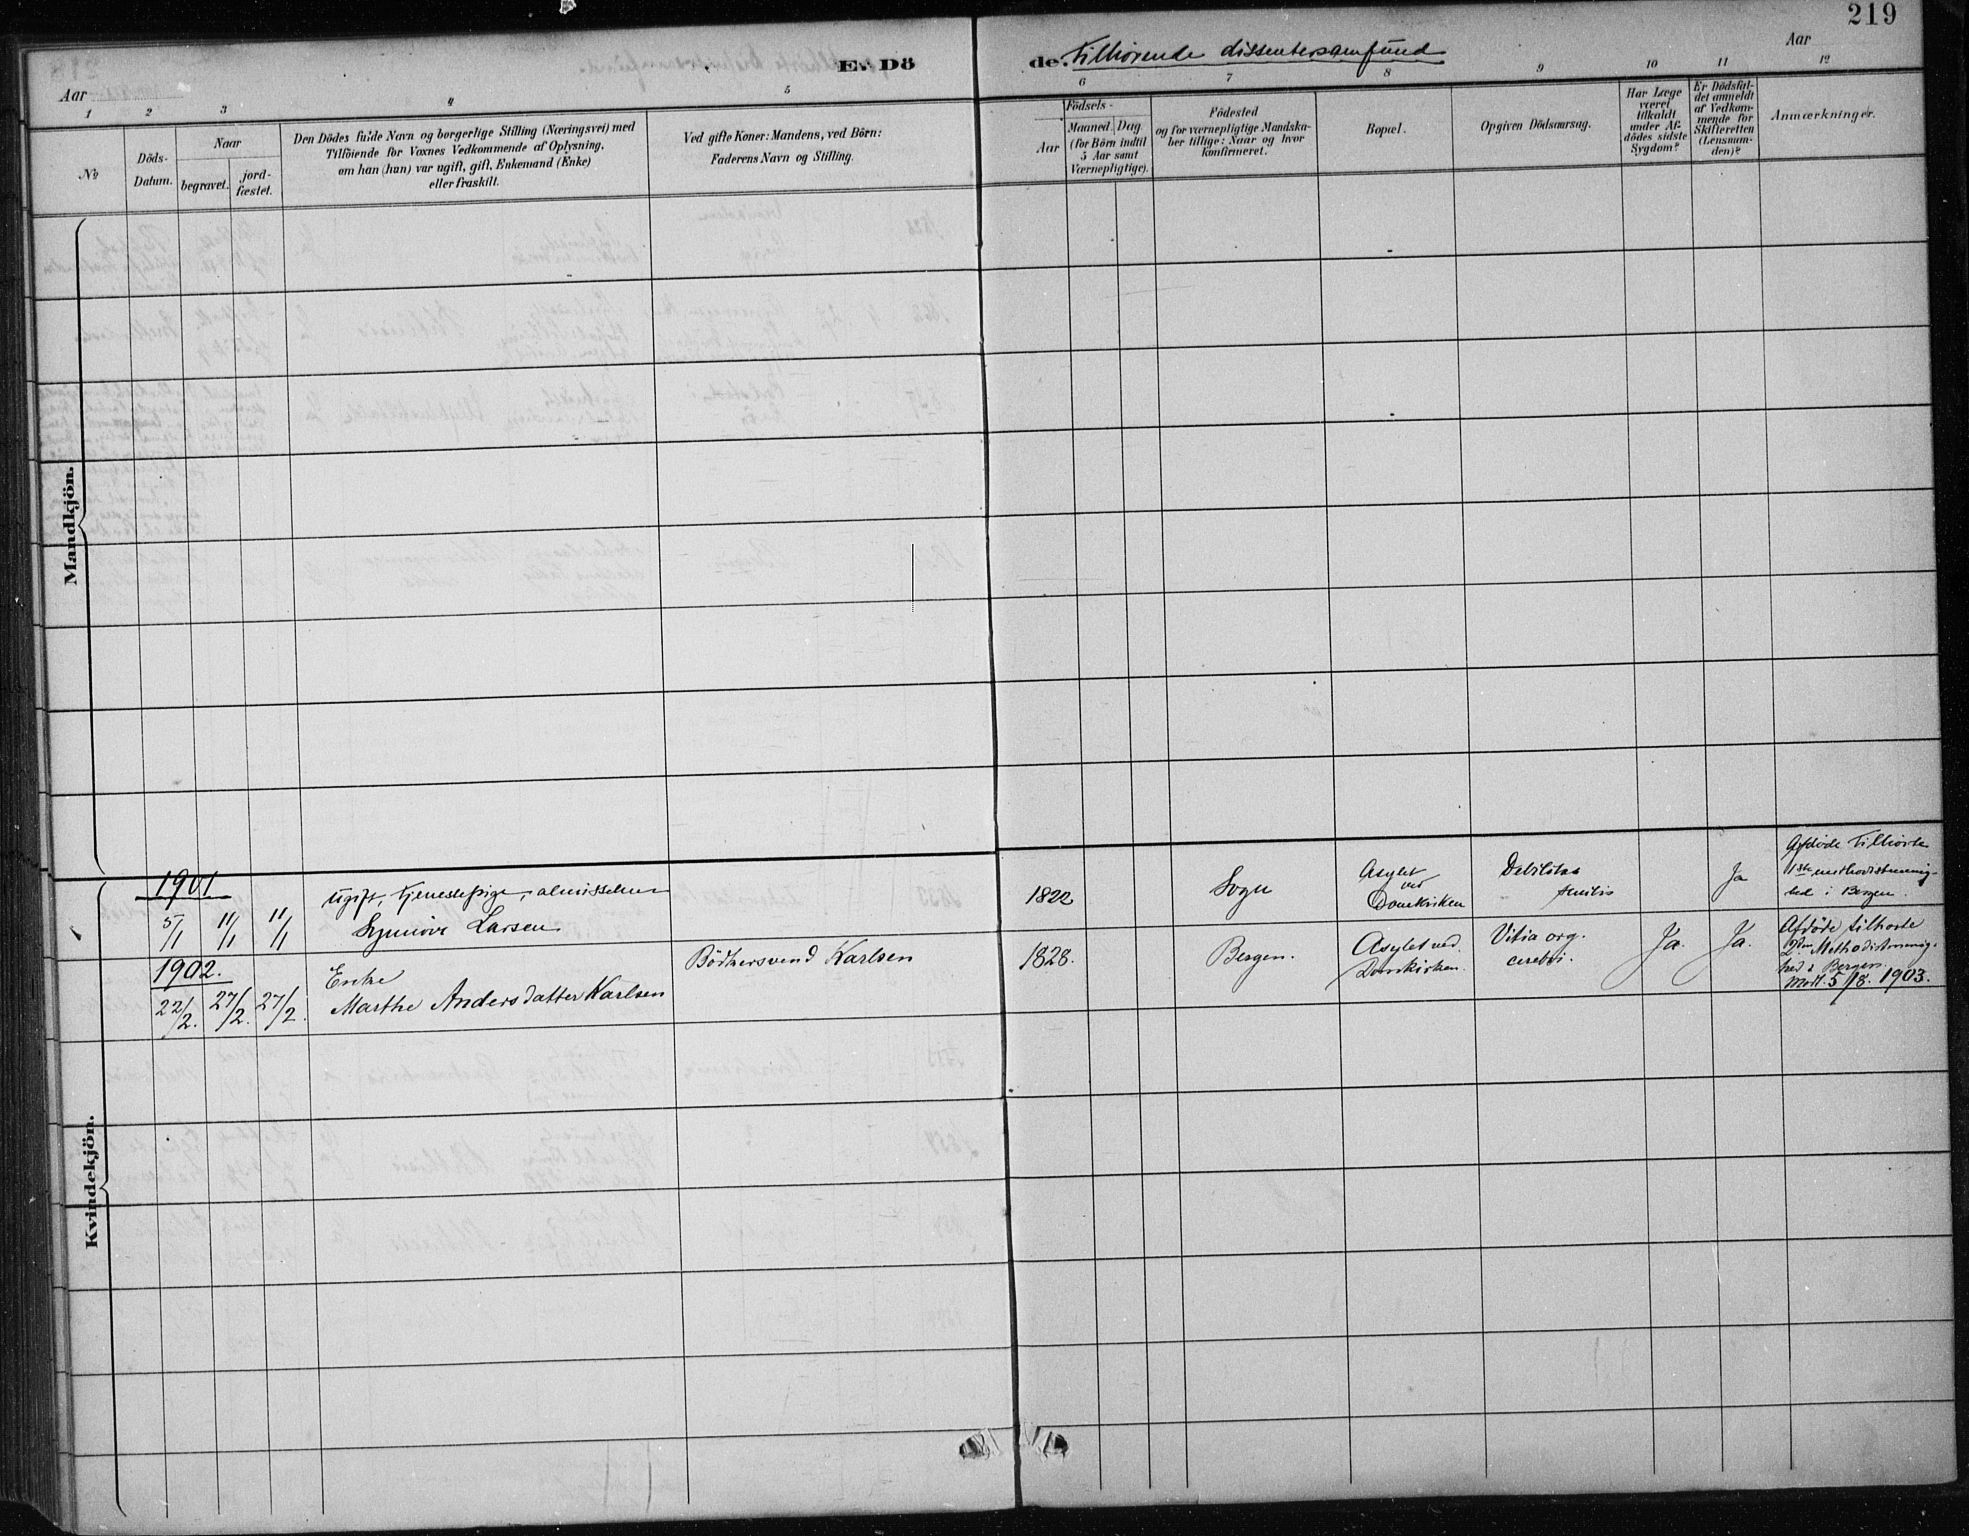 219
E. Döde. Tilhørende dissentersamfund
Aar
Aar
1 2 3 4 5 6 7 8 9 10 11 12
№
Döds-Datum.
Naar
begravet.
jord-fæstet.
Den Dödes fulde Navn og borgerlige Stilling (Næringsvei) med
Tilföiende for Voxnes Vedkommende af Oplysning,
om han (hun) var ugift, gift, Enkemand (Enke)
eller fraskilt.
Ved gifte Koner: Mandens, ved Börn:
Faderens Navn og Stilling.
Födsels-
Aar
Maaned. Dag
(for Börn indtil
5 Aar samt
Værnepligtige).
Födested
og for værnepligtige Mandska-
ber tillige: Naar og hvor
konfirmeret.
Bopæl.
Opgiven Dödsaarsag.
Har Læge
været
tilkaldt
under Af-
dödes sidste
Sygdom?
Er Dödsfal-
det anmeldt
af Vedkom-
mende for
Skifteretten
(Lensman-
den)?
Anmærkninger.
Mandkjön.
Kvindekjön.
1901
5/1 11/1 11/1
Ugift, Tjenestepige,
Synnöve Larsen
1822
Sogn
Asylet
ved
Domkirken
Debilitas
senilis
Ja
Afdöde tilhörte
1ste
i Bergen.
1902.
22/2. 27/2. 27/2.
Enke
Marthe Andersdatter Karlsen
Bödkersvend Karlsen
1828.
Bergen.
Asylet ved
Domkirken.
Vitia org.
cerebri.
Ja.
Ja.
Afdöde tilhörte
2den Methodistmenig-
hed i Bergen.
Modt. 5/8. 1903.